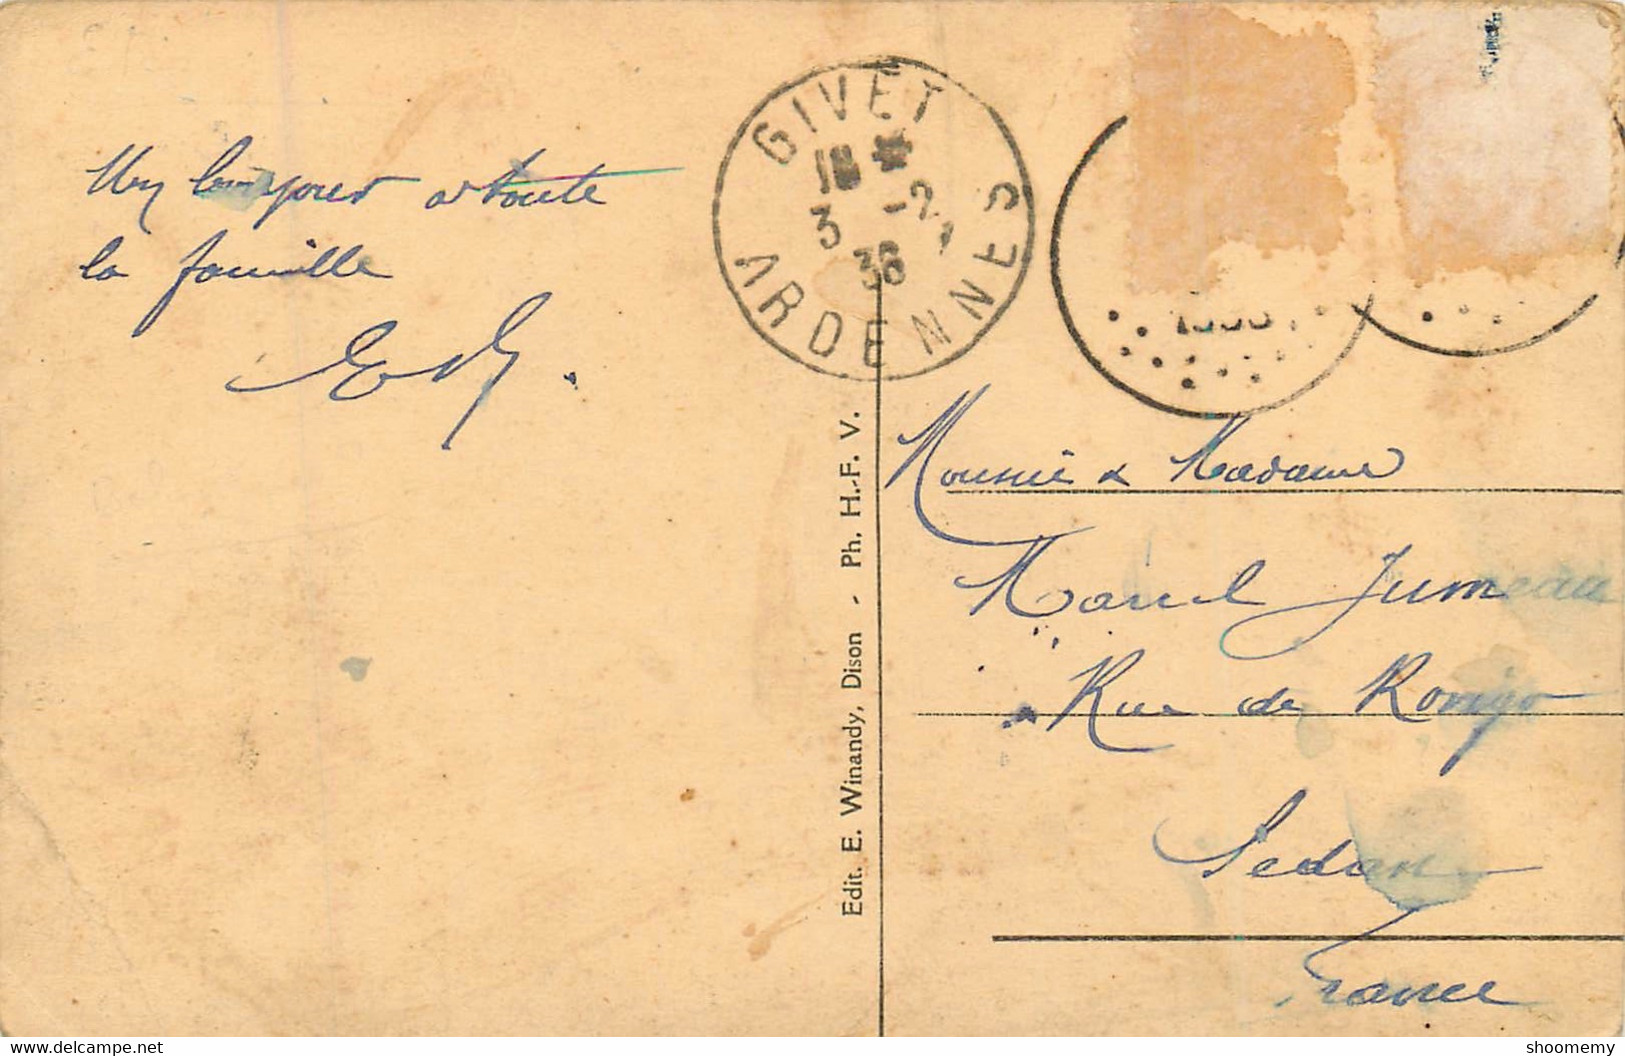 Un bonjour a toute
la famille
GIVET
18 *
3 -2
36
ARDENNES
Edit. E. Winandy, Dison - Ph. H.-F. V.
Monsieu & Madame
Marcel Jumeau
Rue de Rovigo
Sedan
France
delcampe.net
shoomemy